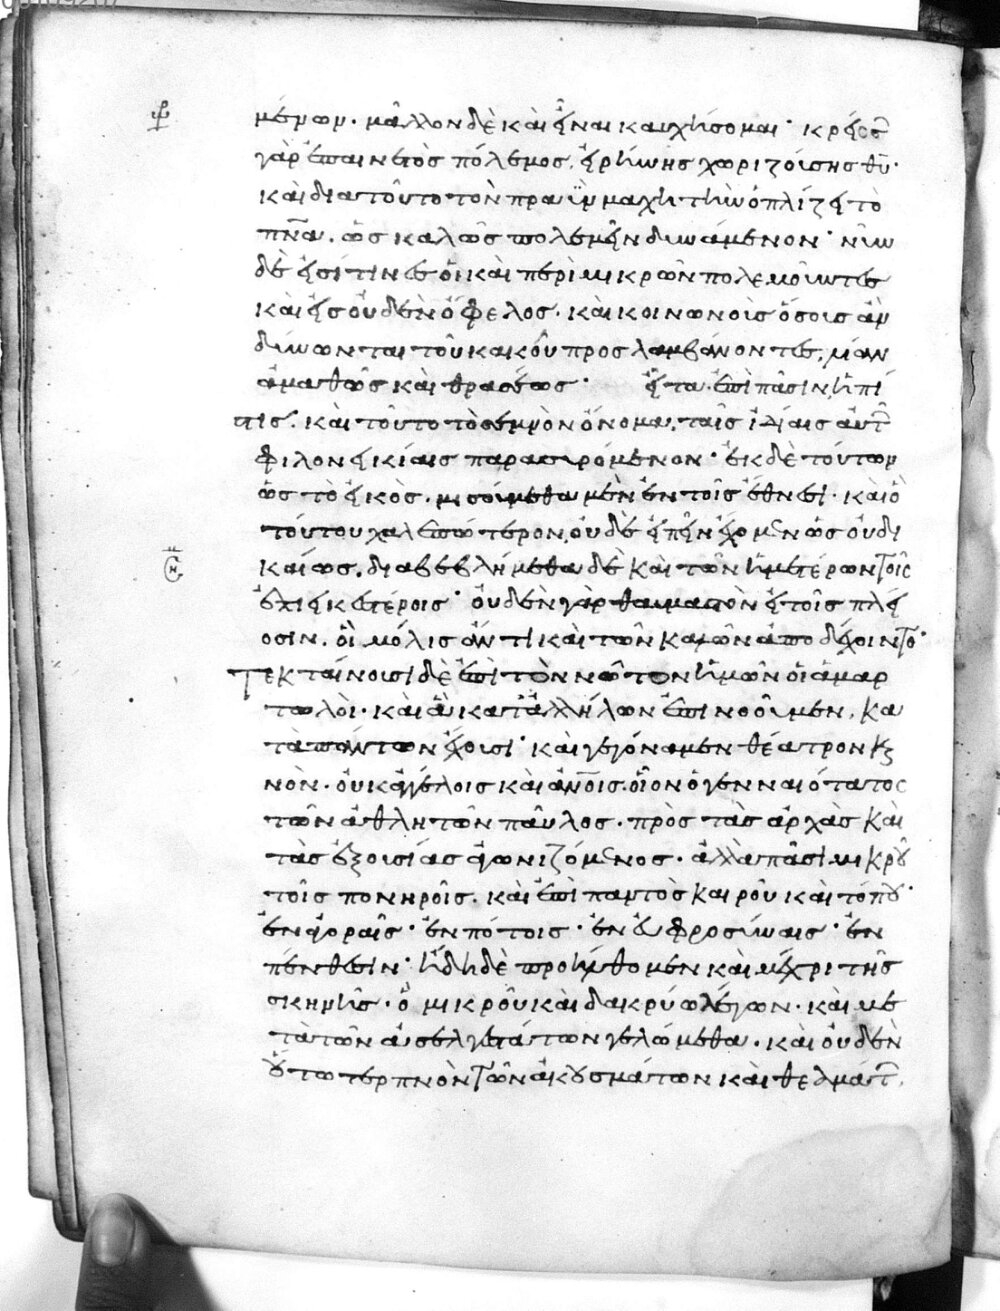 μένων· μᾶλλον δὲ καὶ εἶναι καυχήσομαι· κρείσσ
γὰρ ἐπαινετὸς πόλεμος, εἰρήνης χωριζούσης θυ·
καὶ δια τοῦτο τὸν πραῢν μαχητὴν ὁπλίζει τὸ
πνα. ὡς καλῶς πολεμεῖν δυνάμενον· νῦν
δὲ εἰσί τινες οἳ καὶ περὶ μικρῶν πολεμοῦντες
καὶ εἰς οὐδὲν ὄφελος· καὶ κοινωνοὺς ὅσους ἂν
δύνωνται τοῦ κακοῦ προσλαμβάνοντες, λίαν
ἀμαθῶς καὶ θρασέως· εἶτα ἐπὶ πᾶσιν, ἡ πί
στις· καὶ τοῦτο τὸ σεμνὸν ὄνομα, ταῖς ἰδίαις αὐτ
φιλονεικίαις παρασυρόμενον· ἐκ δὲ τούτων
ὡς τὸ εἰκὸς· μισούμεθα μὲν ἐν τοῖς ἔθνεσι· καὶ ὃ
τούτου χαλεπώτερον, οὐδὲ εἰπεῖν ἔχομεν ὡς οὐ δι
καίως. διαβεβλήμεθα δὲ καὶ τῶν ἡμετέρων τοῖς
ἐπιεικεστέροις· οὐδὲν γὰρ θαυμαστὸν εἰ τοῖς πλεί
οσιν. οἳ μόλις ἄν τι καὶ τῶν καλῶν ἀποδέχοιντο·
Τεκταίνουσι δὲ ἐπὶ τὸν νῶτον ἡμῶν οἱ ἁμαρ
τωλοὶ· καὶ ἃ κατἀλλήλων ἐπινοοῦμεν, κα
τὰ πάντων ἔχουσι· καὶ γεγόναμεν θέατρον και
νὸν· οὐκ ἀγγέλοις καὶ ἀνοις. οἷον ὁ γενναιότατος
τῶν ἀθλητῶν παῦλος· πρὸς τὰς ἀρχὰς καὶ
τὰς ἐξουσίας ἀγωνιζόμενος· ἀλλὰ πᾶσι μικροῦ
τοῖς πονηροῖς· καὶ ἐπὶ παντὸς καιροῦ καὶ τόπου·
ἐν ἀγοραῖς· ἐν πότοις· ἐν εὐφροσύναις· ἐν
πένθεσιν· ἤδη δὲ προήλθομεν καὶ μέχρι τῆς
σκηνῆς· ὃ μικροῦ καὶ δακρύω λέγων· καὶ με
τὰ τῶν ἀσελγεστάτων γελώμεθα· καὶ οὐδὲν
οὕτω τερπνὸν τῶν ἀκουσμάτων καὶ θεαμάτ